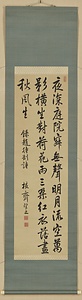 夜深庭院寂無聲明月流空萬
影橫坐對荷花兩三朶紅衣落盡
秋風生